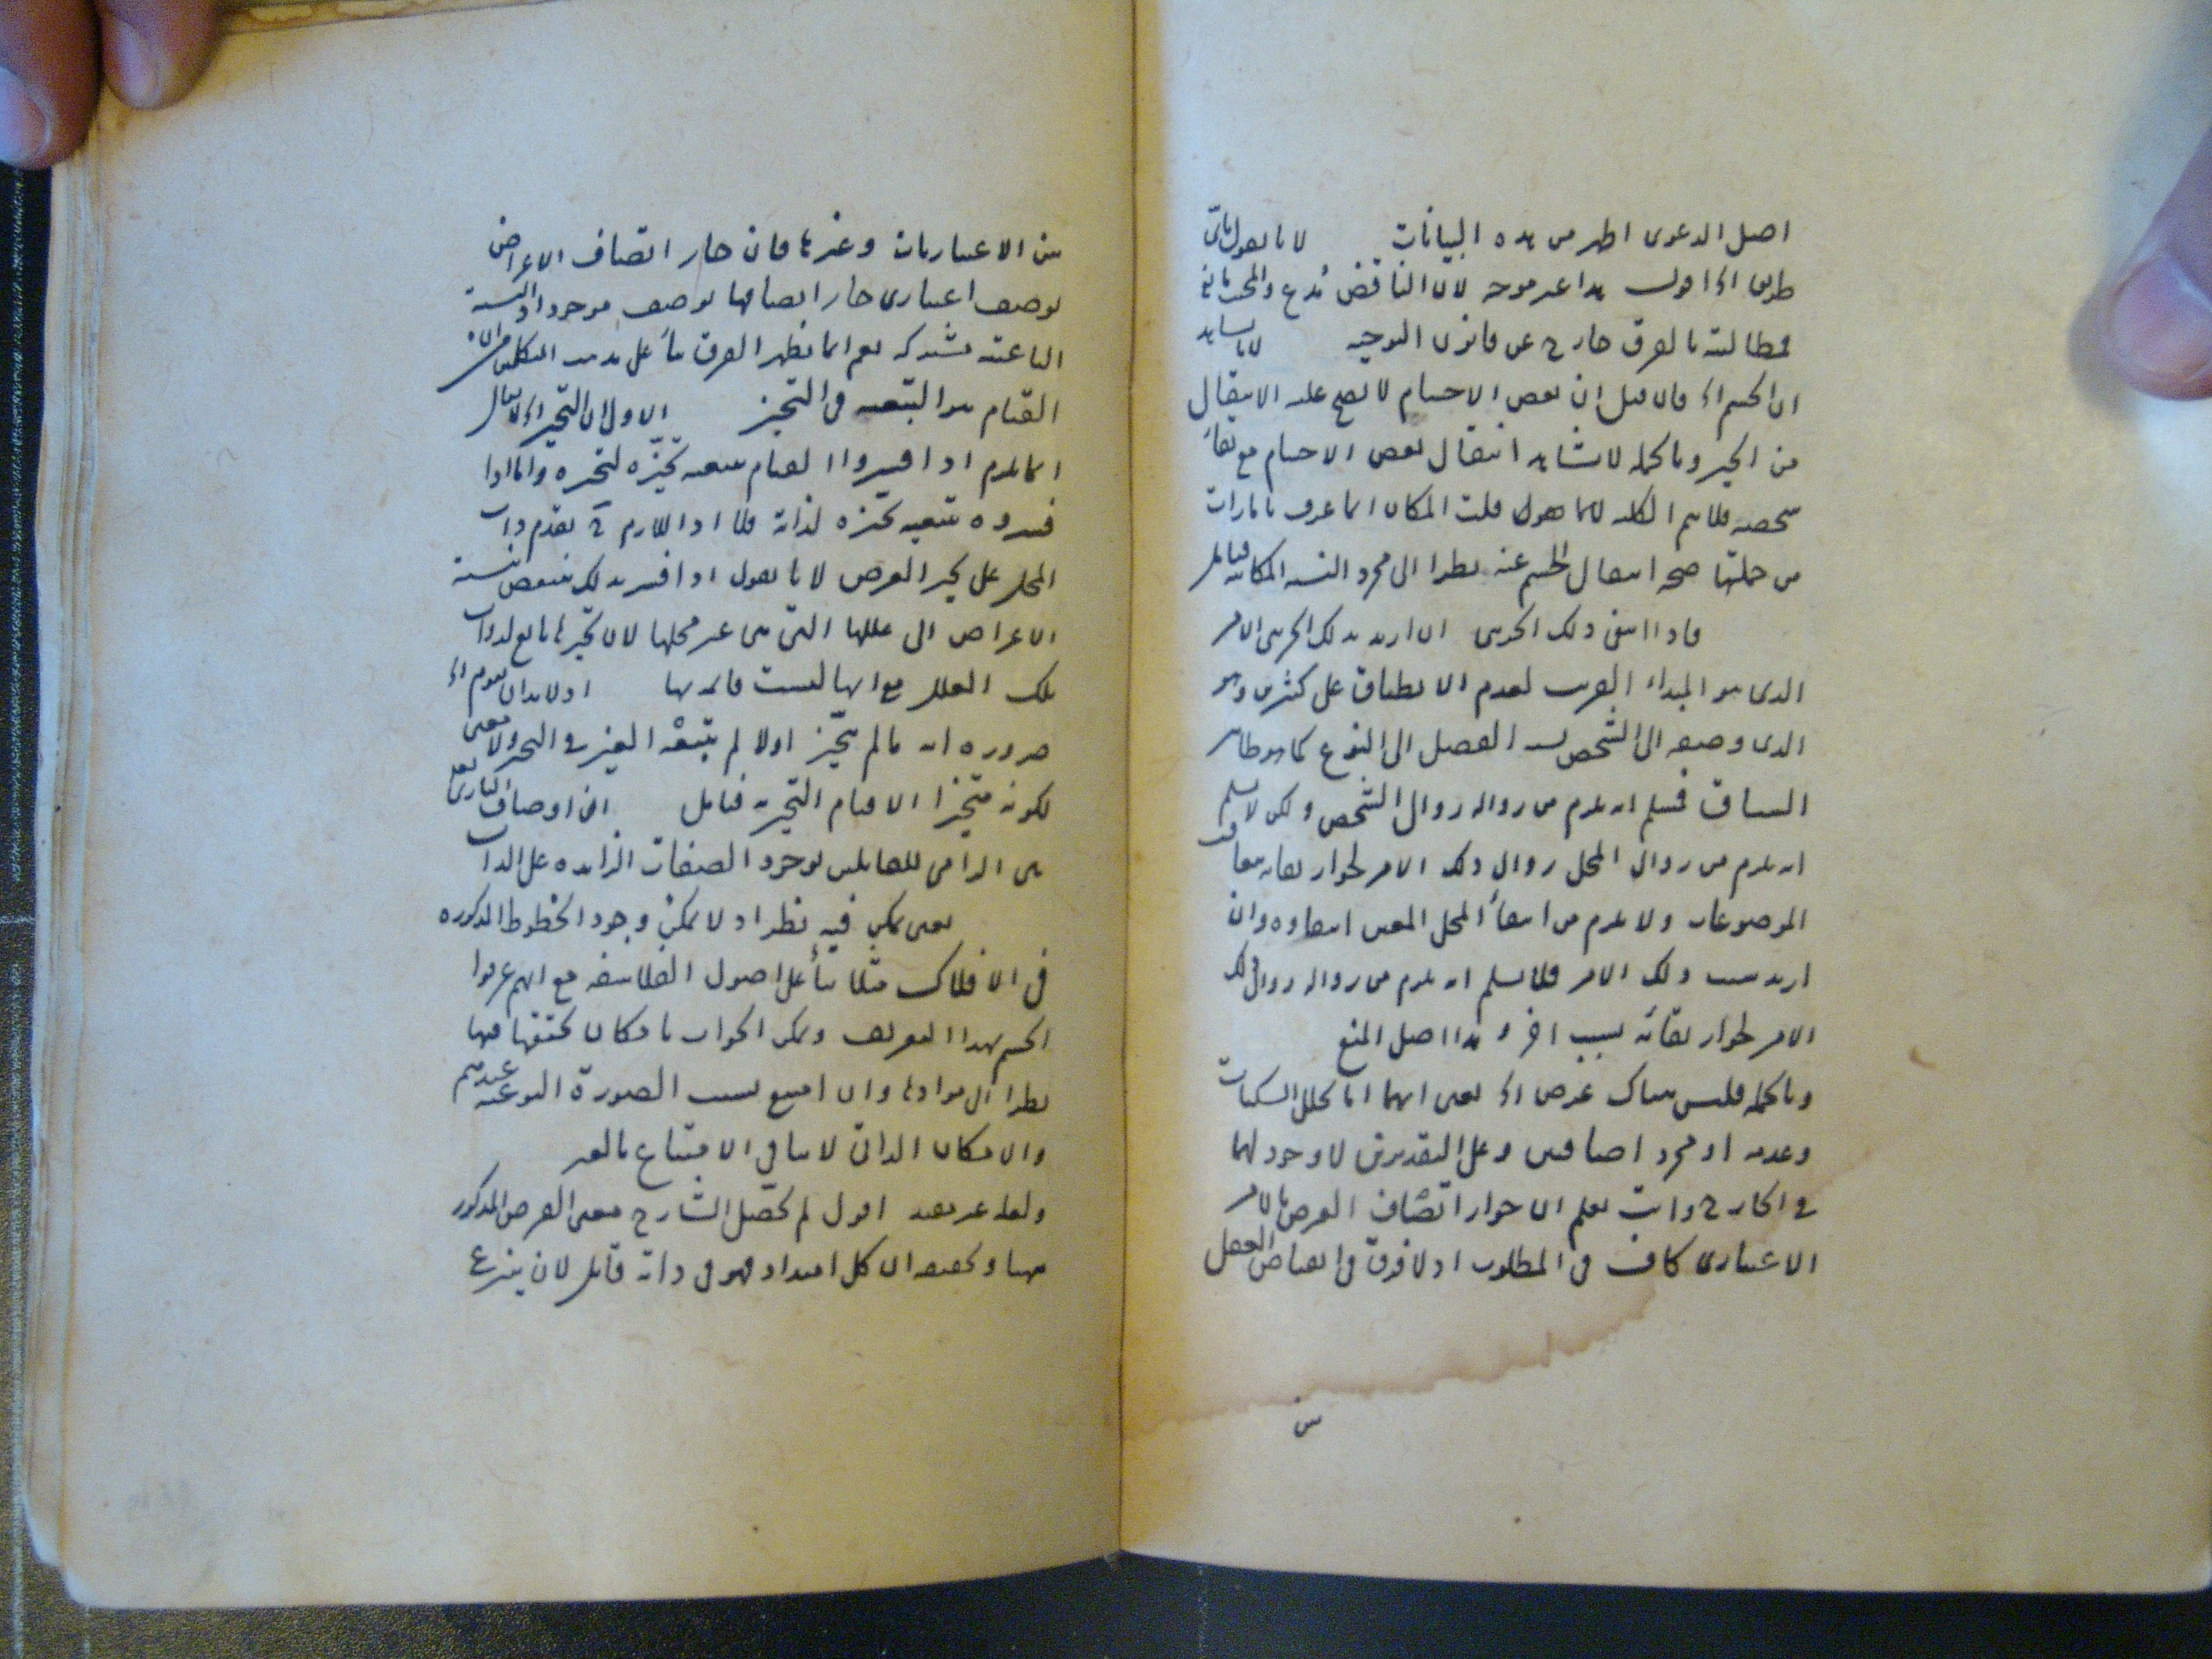 اصل الدعوى اظهر من هذه البيانات لانا نقول بأى
طريق الخ اقول هذا غير موجه لان الناقض مدع والمجيب مانع
فمطالبته بالفرق خارج عن قانون التوجيه لانا نشاهد
ان الجسم الخ فان قيل ان بعض الاجسام لا يصح عليه الانتقال
من الحيز وبالجملة لا نشاهد انتقال بعض الاجسام مع بقاء
شخصه فلا تتم الكلية كما هو قلت المكان انما عرف بامارات
من جملتها صحة انتقال الجسم عنه نظرا الى مجرد النسبة المكانية فتأمل
فاذا انتفى ذلك الجزئى ان اريد بذلك الجزئى الامر
الذى هو المبدأ القريب لعدم الانطباق على كثيرين وهو
الذى وضعه الى الشخص نسبة الفصل الى النوع كما هو ظاهر
السياق فسلم انه يلزم من زواله زوال الشخص ولكن لا نسلم
انه يلزم من زوال المحل زوال ذلك الامر لجواز بقائه
الموضوعات ولا يلزم من انتفاء المحل المعين انتفاؤه وان
اريد سبب ذلك الامر فلا نسلم انه يلزم من زواله زوال ذلك
الامر لجواز بقائه بسبب اخر وهذا اصل المنع
وبالجملة فليس هناك عرض الخ يعنى انهما اما تخلل السكنات
وعدمه او مجرد اضافتين وعلى التقديرين لا وجود لهما
فى الخارج وانت تعلم ان جواز اتصاف العرض بالامر
الاعتبارى كاف فى المطلوب اذ لا فرق فى العقل
بين
بين الاعتباريات وغيرها فان جاز اتصاف الاعراض
بوصف اعتبارى جاز اتصافها بوصف موجود اذ النسبة
الناعتية مشتركة نعم انما يظهر الفرق بناء على مذهب المتكلمين من ان
القيام هو التبعية فى التحيز الاول ان التحيز الخ لا يقال
انما يلزم اذا فسروا القيام بتبعية تحيزه لتحيزه واما اذا
فسروه بتبعية تحيزه لذاته فلا اذ اللازم ح تقدم ذات
المحل على تحيز العرض لانا نقول اذا فسر بذلك ينتقض بنسبة
الاعراض الى عللها التى هى غير محلها لان تحيزها تابع لذوات
تلك العلل مع انها ليست قائمة بها اذ لا بد ان يقوم الخ
ضرورة انه ما لم يتحيز اولا لم يتبعه الغير فى التحيز ولا معنى
لكونه متحيزا الا قيام التحيز به فتأمل ان اوصاف البارى تعالى
هى الزامى للقائلين بوجود الصفات الزايدة على الذات
يعنى يمكن فيه نظر اذ لا يمكن وجود الخطوط المذكورة
فى الافلاك مثلا بناء على اصول الفلاسفة مع انهم عرفوا
الجسم بهذا التعريف ويمكن الجواب بامكان تحققها فيها
نظرا الى موادها وان امتنع بسبب الصورة النوعية عندهم
والامكان الذاتى لا ينافى الامتناع بالغير
ولعله غير مفيد اقول لم يحصل الشارح معنى العرض المذكور
هنا وتحقيقه ان كل امتداد فهو فى ذاته قابل لان ينتزع